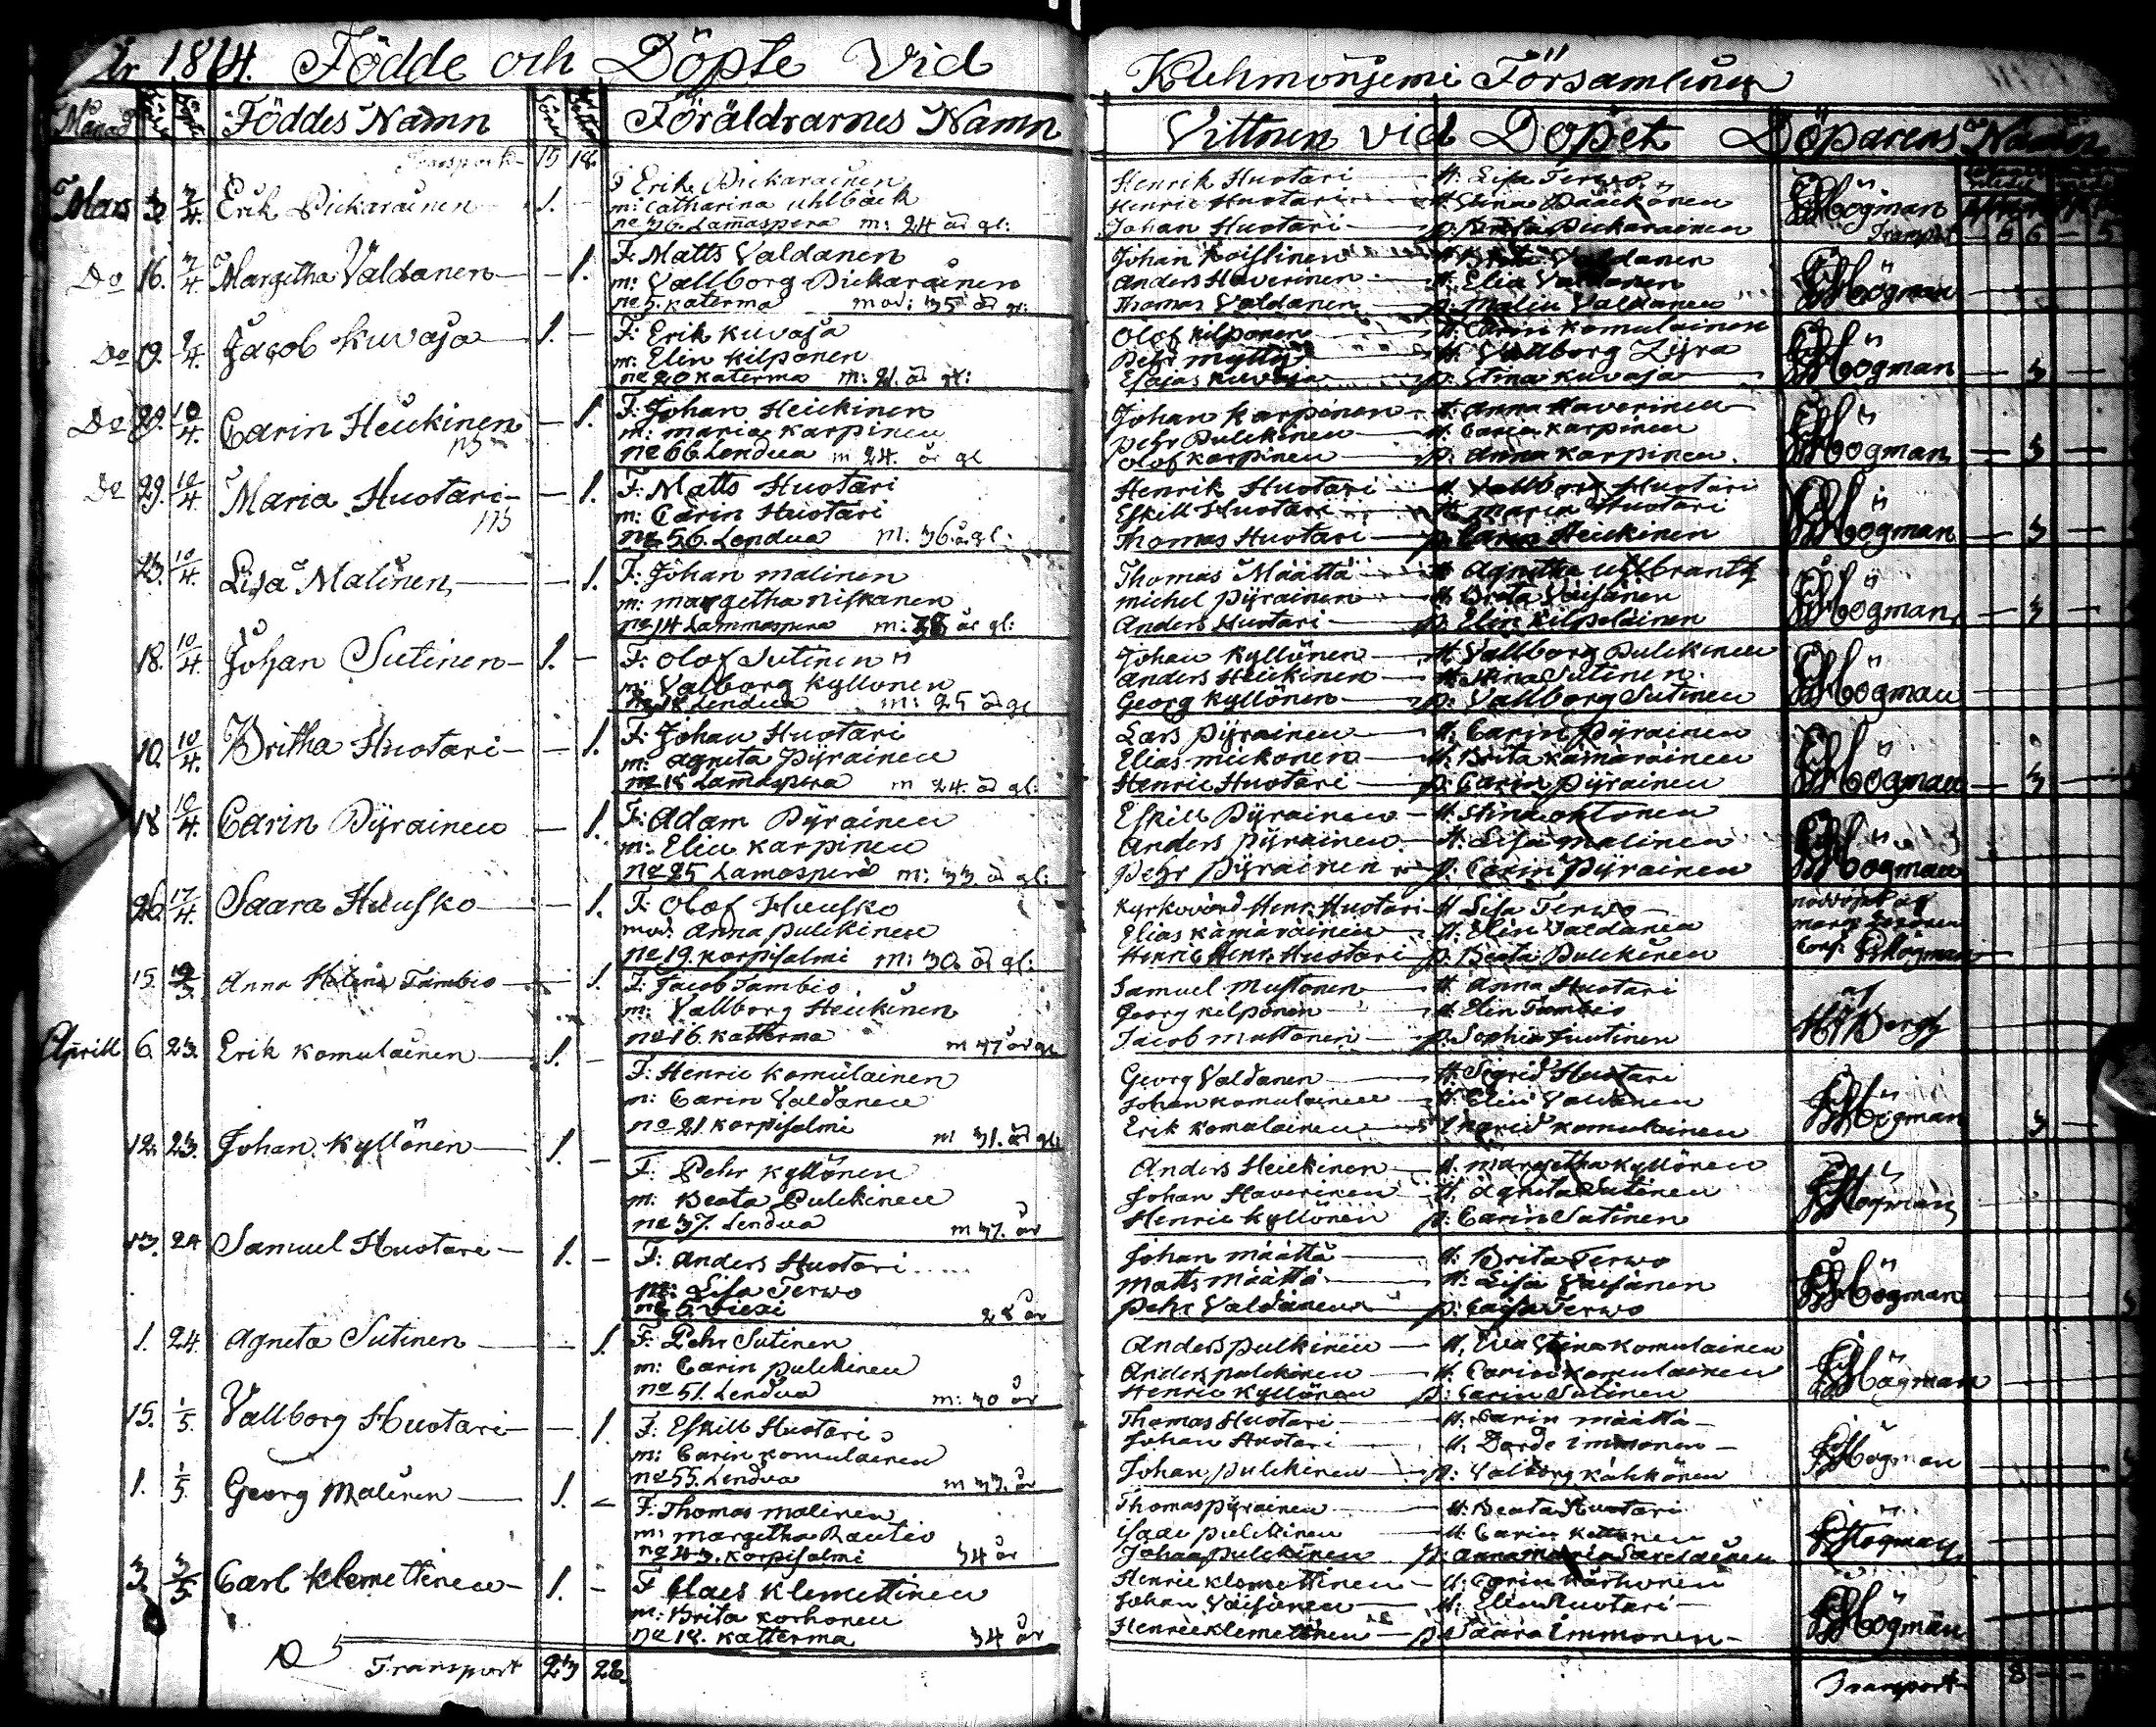 År 1814. Födde och Döpte Vid Kuhmoniemi Församling
Månad Födde Döpte Föddes Namn Föräldrarnes Namn Vittnen vid Dopet Döparens Namn
Transport 15 18.
Mars 3. 3/4. Erik Pickarainen 1. -
F: Erik Pickarainen
m: Catharina Uhlbäck
no 36. Lamaspera m: 24 år gl:
Henrik Huotari H: Lisa Terwo
Henric Huotari
Johan Huotari p: Brita Pickarainen
Högman
Transp: 6 6 - 5
Do 16. 3/4. Margetha Valdanen - 1.
F: Matts Valdanen
m: Vallborg Pickarainen
no 5. Katerma mod: 35 år gl:
Johan
Anders Haverinen H: Elin Valdanen
Thomas Valdanen p: Malin Valdanen
Högman
Do 19. 9/4. Jacob Kuvaja 1. -
F: Erik Kuvaja
m: Elin Kilponen
no 20 Katerma m: 21. år gl:
Olof Kilponen H: Carin Komulainen
Pehr H: Vallborg
Esaias Kuvaja p: Stina Kuvaja
Högman - 3 -
Do 29. 10/4. Carin Heickinen - 1.
F: Johan Heickinen
m: Maria Karpinen
no 66. Lendua m 24. år gl
Johan Karpinen H: Anna Haverinen
Pehr Pulckinen H: Carin Karpinen
Olof Karpinen p: Anna Karpinen
Högman - 3 -
Do 29. 10/4. Maria Huotari - 1.
F: Matts Huotari
m: Carin Huotari
no 56. Lendua m: 36. år gl:
Henrik Huotari H: Vallborg Huotari
Eskill Huotari H: Maria Huotari
Thomas Huotari p: Carin Heickinen
Högman - 3 -
23. 10/4. Lisa Malinen - 1.
F: Johan Malinen
m: Margetha Niskanen
no 14 Lammaspera m: 38 år gl:
Thomas Määttä H: Agnetha
Michel Pyrainen H: Brita Väisänen
Anders Huotari p: Elin Kilpelainen
Högman - 3 -
18. 10/4. Johan Sutinen 1. -
F: Olof Sutinen
m: Valborg Kyllonen
no 18 Lendua m: 25 år gl
Johan Kyllönen H: Vallborg Pulckinen
Anders Heickinen H: Sutinen
Georg Kyllönen p: Vallborg Sutinen
Högman
10. 10/4. Britha Huotari - 1.
F: Johan Huotari
m: Agneta Pyrainen
no 18 Lamaspera m 24. år gl:
Lars Pyrainen H: Carin Pyrainen
Elias Mickonen H: Brita Kämäräinen
Henric Huotari p: Carin Pyrainen
Högman - 3 -
18 10/4. Carin Pyrainen - 1.
F: Adam Pyrainen
m: Elin Karpinen
no 25 Lamaspera m: 33 år gl:
Eskill Pyrainen H: Stina Ohtonen
Anders Pyrainen H: Lisa Malinen
Pehr Pyrainen p: Carin Pyrainen
Högman
26. 17/4. Saara Huusko - 1.
F: Olof Huusko
mod: Anna Pulckinen
no 19. Korpisalmi m: 30 år gl:
Kyrkovärd Henr. Huotari H: Lisa Terwo
Elias Kämäräinen H: Elin Valdanen
Henric Henr: Huotari p: Beata Pulckinen
nöddöpt af
Conf: Högman
15. 19/3. Anna Helena Tambio - 1.
F: Jacob Tambio
m: Vallborg Heickinen
no 16. Katterma m 47 år gl
Samuel Mustonen H: Anna Huotari
Georg Kelponen H: Elin Tambio
Jacob Mustonen p: Sophia Juntinen
af
Bergh
Aprill 6. 23. Erik Komulainen 1. -
F: Henric Komulainen
m: Carin Valdanen
no 21. Korpisalmi m 31. år gl
Georg Valdanen H: Sigrid Huotari
Johan Komulainen H: Elin Valdanen
Erik Komulainen Ingrid Komulainen
Högman 3 -
12. 23. Johan Kyllönen 1. -
F: Pehr Kyllönen
m: Beata Pulckinen
no 37. Lendua m 37. år
Anders Heickinen H: Margetha Kyllönen
Johan Haverinen H: Agneta Sutinen
Henric Kyllönen p: Carin Sutinen
Högman
13. 24 Samuel Huotari 1. -
F: Anders Huotari
m: Lisa Terwo
no 5 Viexi 28 år
Johan Määttä H: Brita Terwo
Matts Määttä H: Lisa Väisänen
Pehr Valdanen p: Cajsa Terwo
Högman
1. 24. Agneta Sutinen - 1.
F: Pehr Sutinen
m: Carin Pulckinen
no 51. Lendua m: 30 år
Anders Pulkinen H: Eva Stina Komulainen
Anders Pulckinen H: Carin Komulainen
Henric Kyllönen p: Carin Sutinen
Högman
15. 1/5. Vallborg Huotari - 1.
F: Eskill Huotari
m: Carin Komulainen
no 55. Lendua m 33. år
Thomas Huotari H: Carin Määttä
Johan Huotari H: Dorde Immonen
Johan Pulckinen p: Valborg Kähkönen
Högman
1. 1/5. Georg Malinen 1. -
F: Thomas Malinen
m: Margetha Rautio
no 23. Korpisalmi 34 år
Thomas Pyrainen H: Beata Huotari
Isaac Pulckinen H: Carin
Johan Pulckinen p: Anna Maria
Högman
3. 3/5 Carl Klemettinen 1. -
F Claes Klemettinen
m: Brita Korhonen
no 18. Katterma 34 år
Henric Klemettinen H: Carin Korhonen
Johan Väisänen H: Elin Huotari
Henric Klemettinen p Saara Immonen
Högman
Transport 23 28. Transport 8 - -